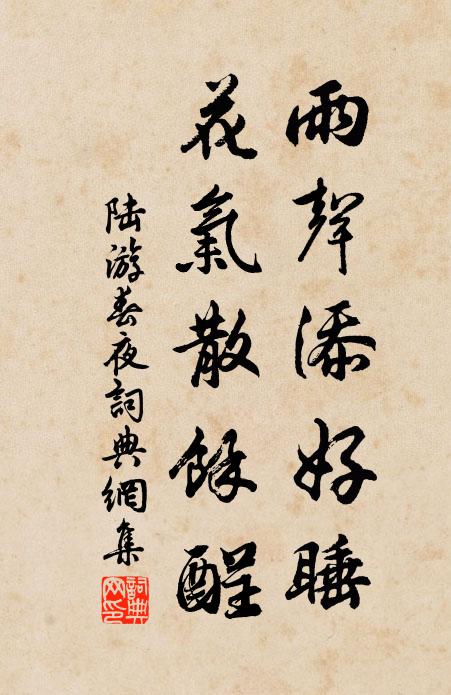 雨聲添好睡
花氣散餘酲
陆游春夜詞典網集
詞典网印